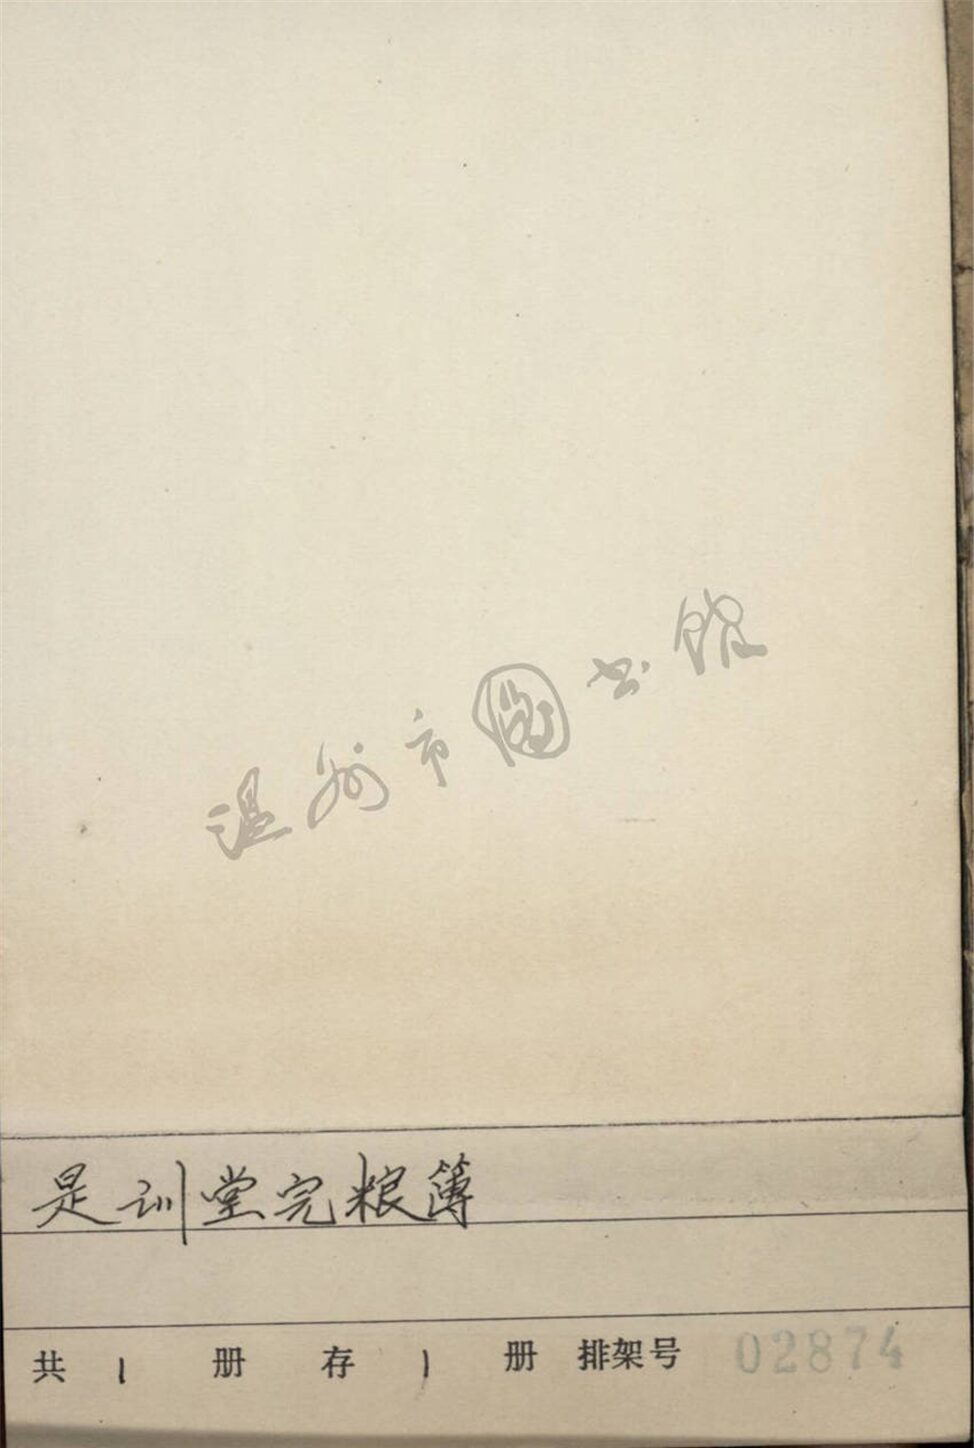 温州市图书馆
是训堂完粮簿
共 1 册 存 1 册 排架号 02874